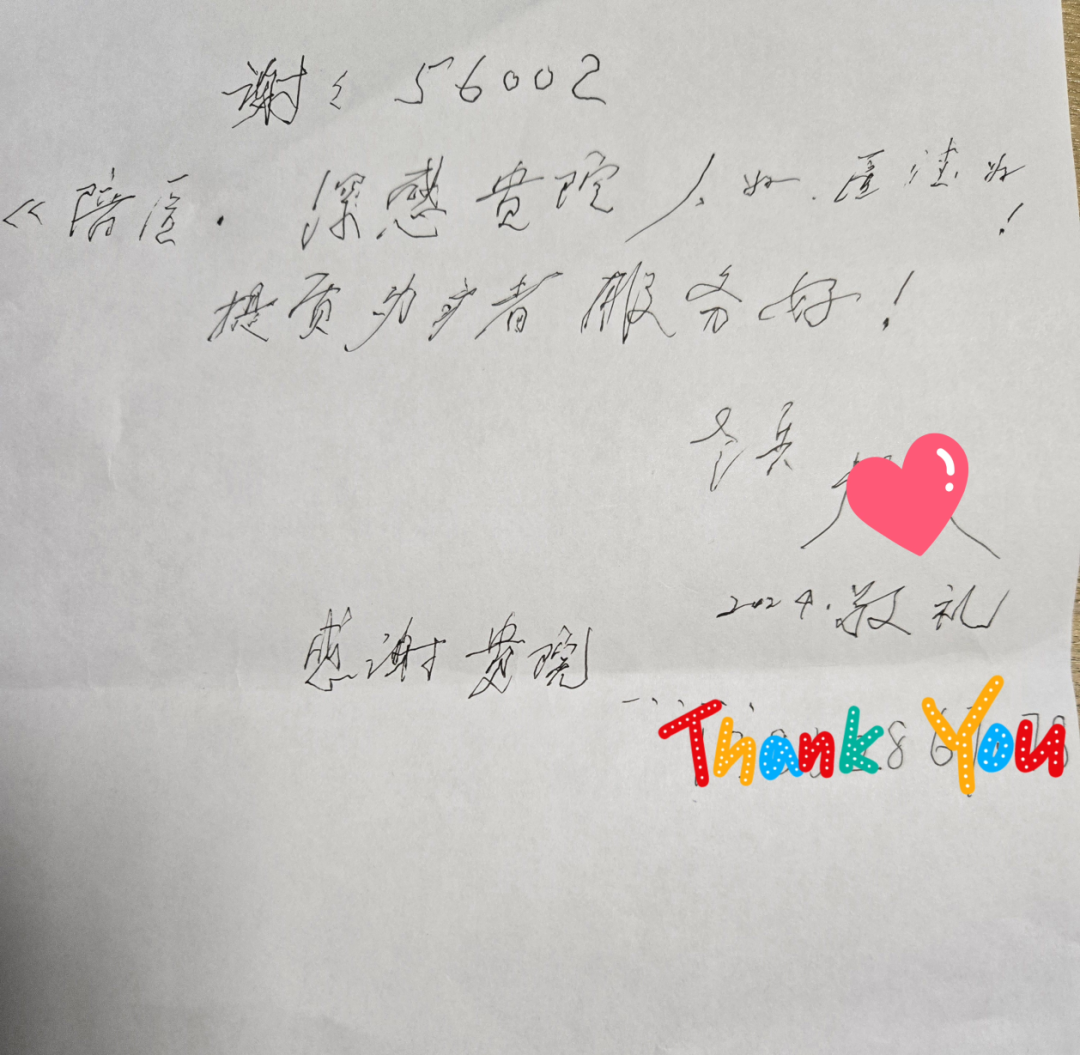 谢〻 56002
《陪医. 深感贵院人好.医德好!
提质为患者服务好!
老兵
2024.敬礼
感谢贵院
Thank You